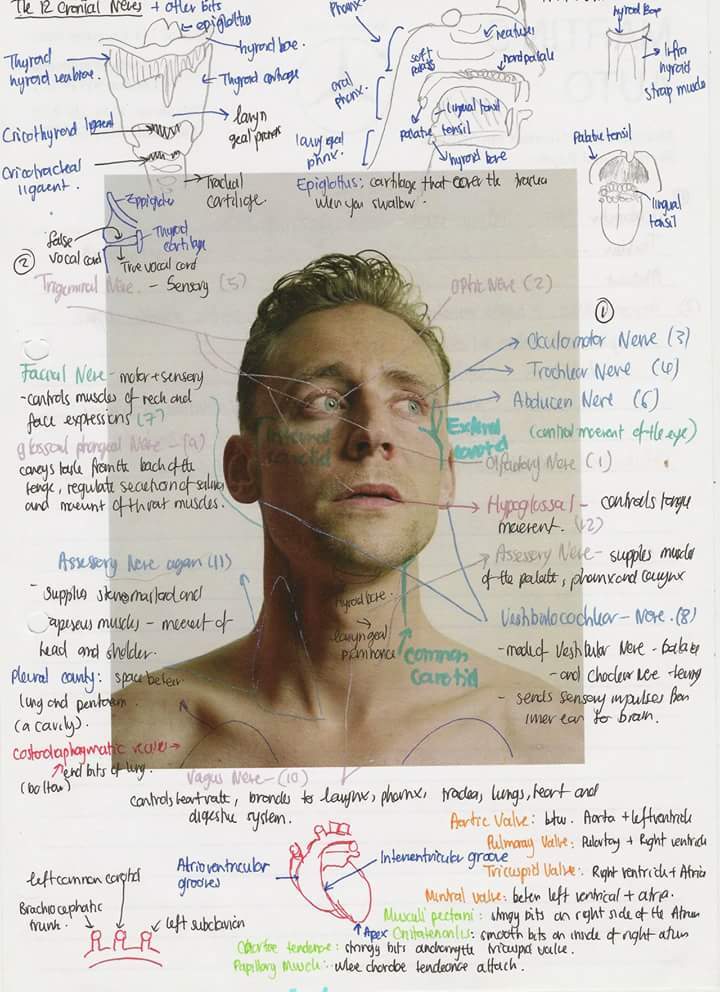 The 12 Cranial Nerves + other bits
epiglottus
hyoid bone.
Thyroid
Thyroid cartilage
laryn
geal
Cricothyroid
Cricotracheal
ligaent.
Tracheal
cartilage
phanx.
soft
hard palate
oral
phanx.
lingual tonsil
palatine tonsil
laryngeal
phnx.
hyoid bone
Epiglottus: cartilage that cover the trachea
when you swallow.
hyoid Bone
infra
hyroid
strap muscle
Palatine tonsil
lingual
tonsil
Eppiglote
false
vocal cord
Thyroid
cartilage
True vocal cord
2
Trigeminal Nerve. - Sensory (5)
Optic Nerve (2)
1
Oculomotor Nerve (3)
Trochlear Nerve (4)
Abducen Nerve (6)
(control movement of the eye)
External
carotid
Internal
carotid
Olfactory Nerve (1)
Facial Nerve - motor + sensory
- controls muscles of neck and
face expressions (7)
glossal phangeal Nerve - (9)
conveys taste from the back of the
tonge, regulate secretion of saliva
and movement of throat muscles.
Hypoglossal - controls tongue
movement. (12)
Assessory Nerve - supples muscles
of the palate, pharnx and larynx
Assessory Nerve again (11)
- supplies
muscles - movement of
head and sholder.
hyroid bone.
laryngeal
prominance
common
carotid
Vestibulocochlear - Nerve. (8)
- made of Vestibular Nerve - balance
- and Choclear Nerve - hearing
- sends sensory impulses from
inner ear to brain.
Pleural cavity: space between
lung and
(a cavity).
costodiaphagmatic recess
end bits of lung.
(bottom)
Vagus Nerve - (10)
controls heart rate, bronchs to larynx, pharnx, trachea, lungs, heart and
digestive system.
Aortic Valve: btw. Aorta + left ventricle
Pulmonary Valve: Pulmonary + Right ventricle
Tricuspid Valve: Right ventricle + Atria
Mintral valve: between left ventrical + atria.
Atrioventricular
grooves
Interventricular groove
Apex
left common carotid
Brachiocephatic
trunk.
left subclavian
Musculi pectani: stringy bits on right side of the Atrium
smooth bits on inside of right atrium
Chordae tendenae: stringy bits anchoring the tricuspid valve.
Papillary Muscle: where chordae tendeanae attach.